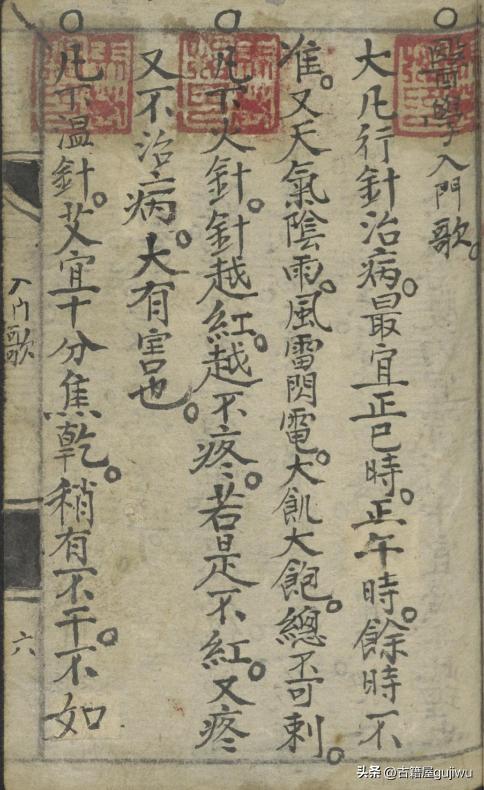 ○醫學入門歌。
大凡行針治病。最宜正巳時。正午時。餘時不
准。又天氣陰雨。風雷閃電。大飢大飽。總不可刺。
○凡下火針。針越紅。越不疼。若是不紅。又疼
又不治病。大有害也。
○凡下溫針。艾宜十分焦乾。稍有不干。不如
入门歌
六
头条 @古籍屋gujiwu